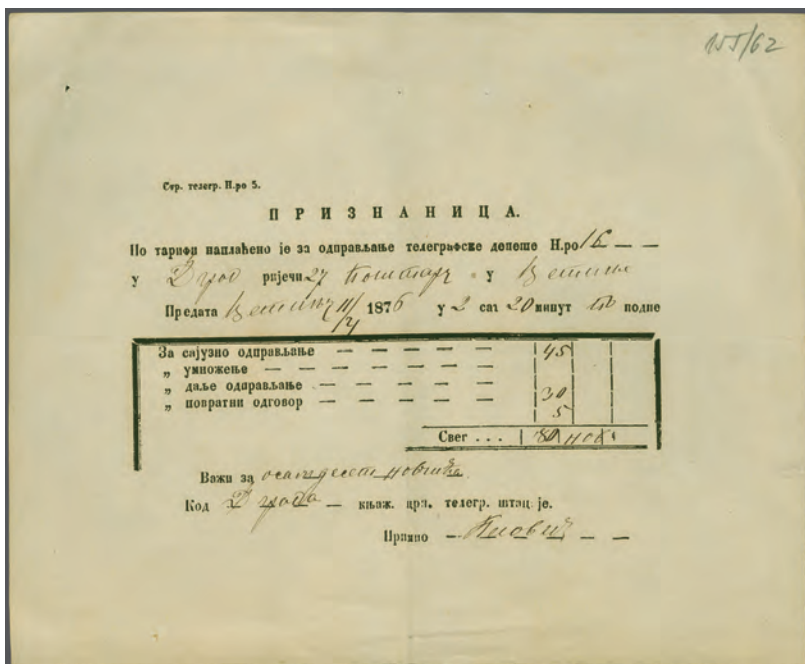 155/62
Стр. телегр. Н.ро 5.
ПРИЗНАНИЦА.
По тарифи наплаћено је за одправљање телеграфске депеше Н.ро 16 — —
у ријечи 27 у
Предата 11/ 1876 у 2 сат 20 минут по подне
За сајузно одправљање — — — — — — 45
„ умножење — — — — — — — —
„ даље одправљање — — — — — — 30
„ повратни одговор — — — — — — 5
Свег . . . 80 нов.
Важи за осамдесет новчића
Код — књаж. црн. телегр. штације.
Примио — — —